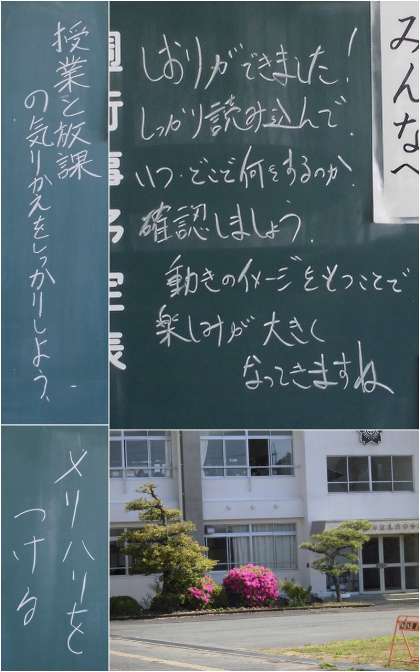 授業と放課
の気りかえをしっかりしよう。
週行事予定表
みんなへ
しおりができました!
しっかり読み込んで、
いつ・どこで何をするのか、
確認しましょう。
動きのイメージをもつことで
楽しみが大きく
なってきますね
メリハリを
つける